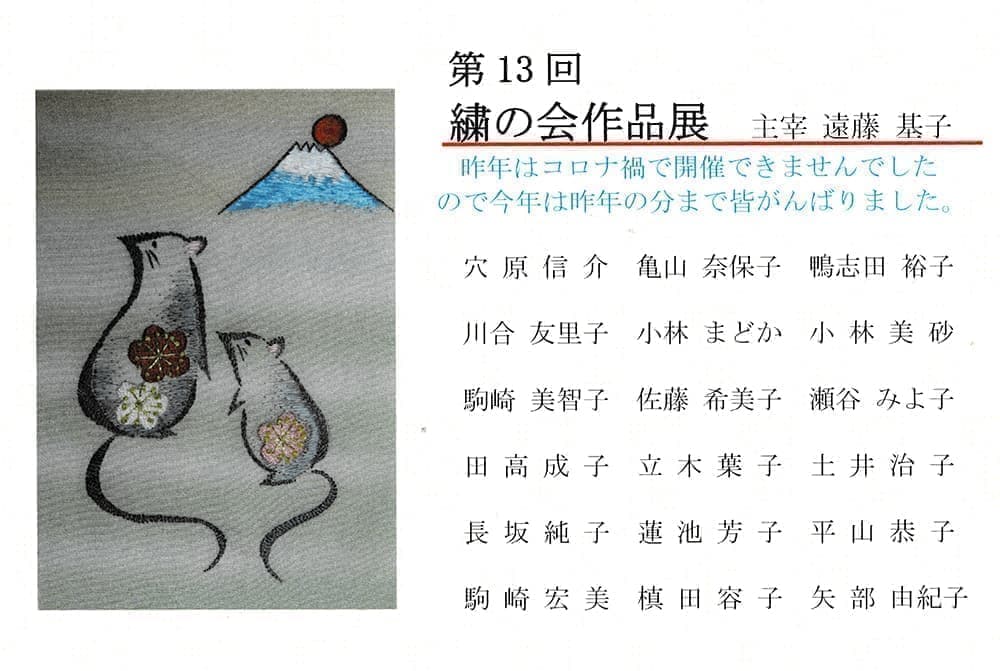 第13回
繍の会作品展 主宰 遠藤 基子
昨年はコロナ禍で開催できませんでした
ので今年は昨年の分まで皆がんばりました。
穴原信介 亀山 奈保子 鴨志田 裕子
川合 友里子 小林 まどか 小林美砂
駒崎 美智子 佐藤 希美子 瀬谷 みよ子
田高成子 立木葉子 土井治子
長坂純子 蓮池芳子 平山恭子
駒崎宏美 槙田容子 矢部由紀子